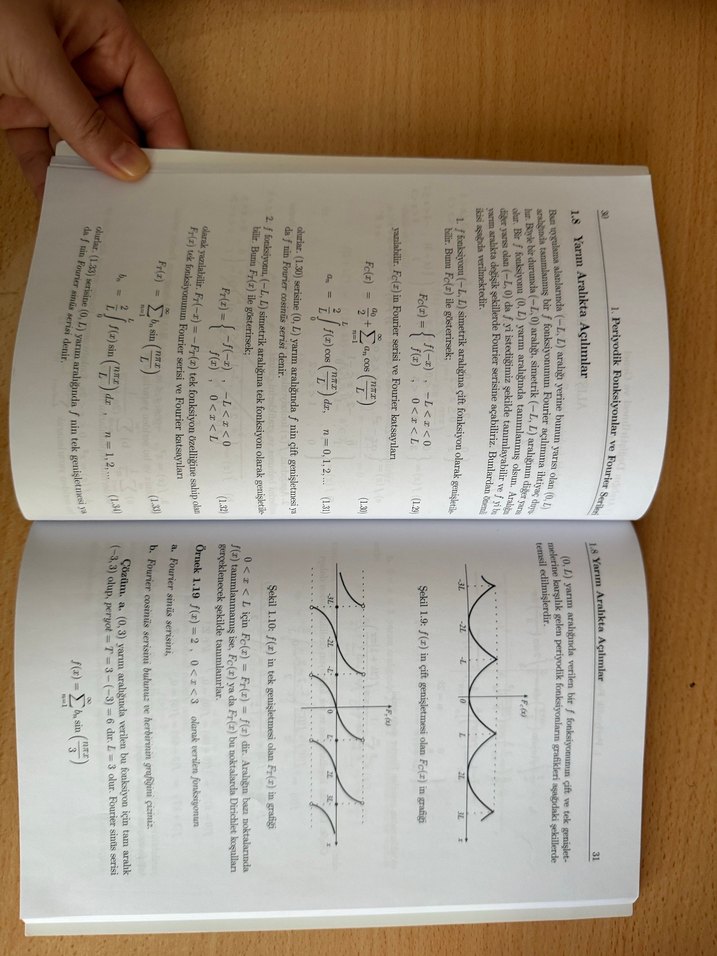 30
1. Periyodik Fonksiyonlar ve Fourier
1.8 Yarım Aralıkta Açılımlar
Bazı uygulama alanlarında (−L, L) aralığı yerine bunun yarısı olan (0, L)
aralığında tanımlanmış bir f fonksiyonunun Fourier açılımına ihtiyaç
lur. Böyle bir durumda (−L, 0) aralığı, simetrik (−L, L) aralığının diğer
olur. Bir f fonksiyonu (0, L) yarım aralığında tanımlanmış olsun. Aralığın
diğer yarısı olan (−L, 0) da f yi istediğimiz şekilde tanımlayabilir ve f yi
yarım aralıkta değişik şekillerde Fourier serisine açabiliriz. Bunlardan
ikisi aşağıda verilmektedir.
1. f fonksiyonu (−L, L) simetrik aralığına çift fonksiyon olarak genişletile-
bilir. Bunu F_C(x) ile gösterirsek;
F_C(x) = { f(−x) , −L < x < 0
f(x) , 0 < x < L (1.29)
yazılabilir. F_C(x) in Fourier serisi ve Fourier katsayıları
F_C(x) = a_0/2 + ∑_{n=1}^{∞} a_n cos (nπx/L) (1.30)
a_n = 2/L ∫_0^L f(x) cos (nπx/L) dx, n = 0, 1, 2, ... (1.31)
olurlar. (1.30) serisine (0, L) yarım aralığında f nin çift genişletmesi ya
da f nin Fourier cosinüs serisi denir.
2. f fonksiyonu, (−L, L) simetrik aralığına tek fonksiyon olarak genişletile-
bilir. Bunu F_T(x) ile gösterirsek;
F_T(x) = { −f(−x) , −L < x < 0
f(x) , 0 < x < L (1.32)
olarak yazılabilir. F_T(−x) = −F_T(x) tek fonksiyon özelliğine sahip olan
F_T(x) tek fonksiyonunun Fourier serisi ve Fourier katsayıları
F_T(x) = ∑_{n=1}^{∞} b_n sin (nπx/L) (1.33)
b_n = 2/L ∫_0^L f(x) sin (nπx/L) dx , n = 1, 2, ... (1.34)
olurlar. (1.33) serisine (0, L) yarım aralığında f nin tek genişletmesi ya
da f nin Fourier sinüs serisi denir.
1.8 Yarım Aralıkta Açılımlar
31
(0, L) yarım aralığında verilen bir f fonksiyonunun çift ve tek genişlet-
melerine karşılık gelen periyodik fonksiyonların grafikleri aşağıdaki şekillerde
temsil edilmişlerdir.
F_c(x)
-3L -2L -L 0 L 2L 3L x
Şekil 1.9: f(x) in çift genişletmesi olan F_C(x) in grafiği
F_T(x)
-3L -2L -L 0 L 2L 3L x
Şekil 1.10: f(x) in tek genişletmesi olan F_T(x) in grafiği
0 < x < L için F_C(x) = F_T(x) = f(x) dir. Aralığın bazı noktalarında
f(x) tanımlanmamış ise, F_C(x) ya da F_T(x) bu noktalarda Dirichlet koşulları
gerçeklenecek şekilde tanımlanırlar.
Örnek 1.19 f(x) = 2 , 0 < x < 3 olarak verilen fonksiyonun
a. Fourier sinüs serisini,
b. Fourier cosinüs serisini bulunuz ve herbirinin grafiğini çiziniz.
Çözüm. a. (0, 3) yarım aralığında verilen bu fonksiyon için tam aralık
(−3, 3) olup, peryot = T = 3 − (−3) = 6 dır. L = 3 olur. Fourier sinüs serisi
f(x) = ∑_{n=1}^{∞} b_n sin (nπx/3)